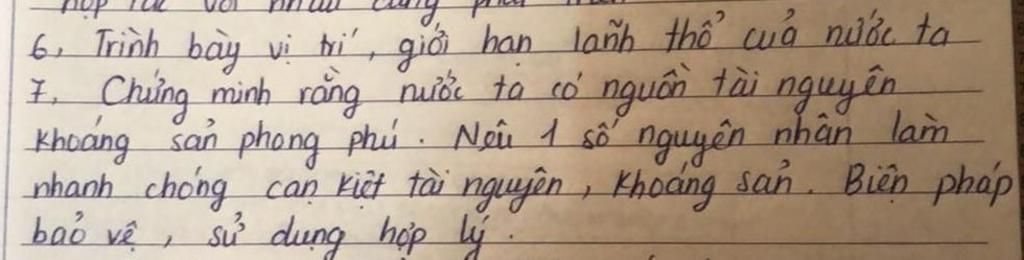 hợp tác với nhau cùng phát triển
6, Trình bày vị trí, giới hạn lãnh thổ của nước ta
7, Chứng minh rằng nước ta có nguồn tài nguyên
khoáng sản phong phú. Nêu 1 số nguyên nhân làm
nhanh chóng cạn kiệt tài nguyên, khoáng sản. Biện pháp
bảo vệ, sử dụng hợp lý.